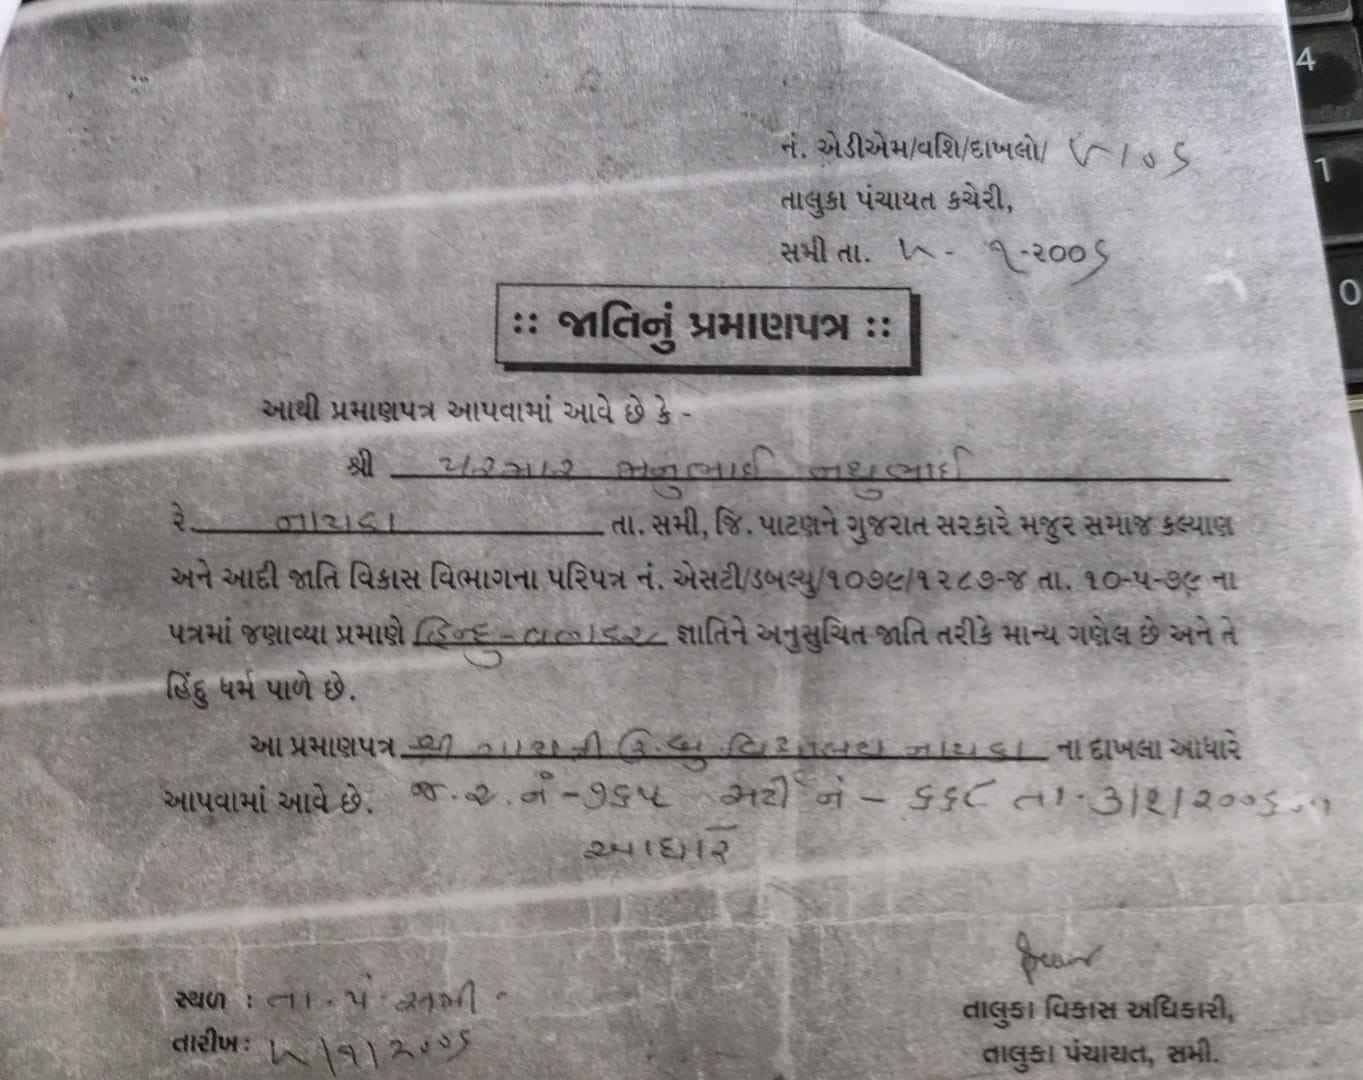 નં. એડીએમ/વશિ/દાખલો/ ૫/૦૬
તાલુકા પંચાયત કચેરી,
સમી તા. ૫ - ૧-૨૦૦૬
:: જાતિનું પ્રમાણપત્ર ::
આથી પ્રમાણપત્ર આપવામાં આવે છે કે -
શ્રી પરમાર મનુભાઈ નથુભાઈ
રે. નાયકા તા. સમી, જિ. પાટણને ગુજરાત સરકારે મજુર સમાજ કલ્યાણ
અને આદી જાતિ વિકાસ વિભાગના પરિપત્ર નં. એસટી/ડબલ્યુ/૧૦૭૯/૧૨૮૭-જ તા. ૧૦-૫-૭૯ ના
પત્રમાં જણાવ્યા પ્રમાણે હિન્દુ-વણકર જ્ઞાતિને અનુસુચિત જાતિ તરીકે માન્ય ગણેલ છે અને તે
હિંદુ ધર્મ પાળે છે.
આ પ્રમાણપત્ર શ્રી ગાયત્રી ઉ.બુ. વિદ્યાલય નાયકા ના દાખલા આધારે
આપવામાં આવે છે. જ.ર.નં - ૭૬૫ નં - ૬૬૮ તા. ૩/૧/૨૦૦૬ ના
આધારે
સ્થળ : તા. પં. સમી
તારીખ: ૫/૧/૨૦૦૬
તાલુકા વિકાસ અધિકારી,
તાલુકા પંચાયત, સમી.
4
1
0